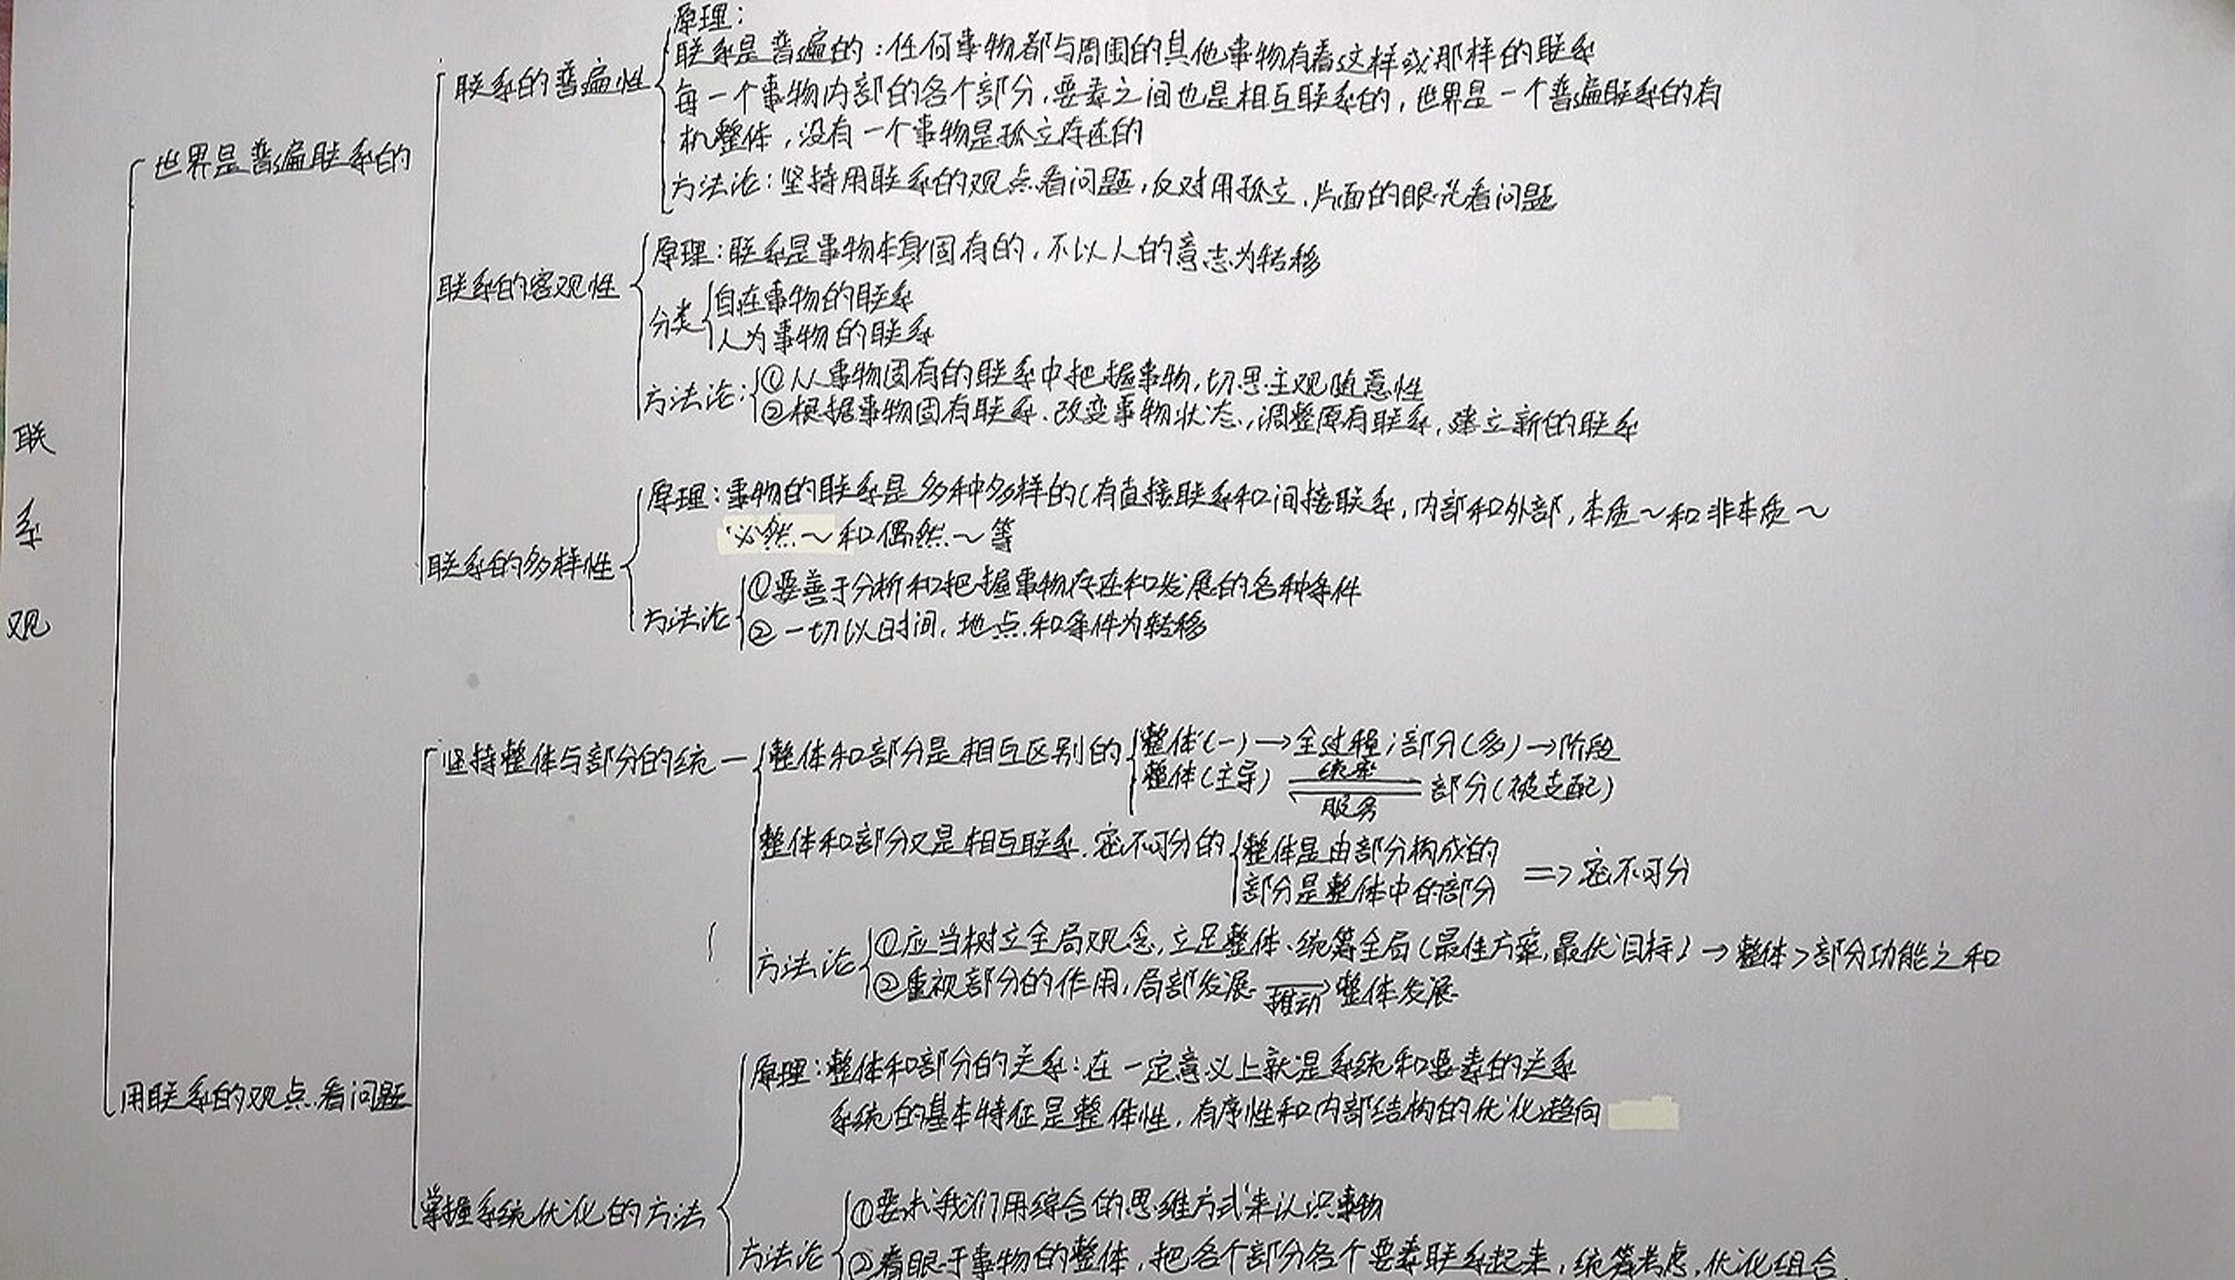 联系观
世界是普遍联系的
联系的普遍性
原理：
联系是普遍的：任何事物都与周围的其他事物有着这样或那样的联系
每一个事物内部的各个部分，要素之间也是相互联系的，世界是一个普遍联系的有
机整体，没有一个事物是孤立存在的
方法论：坚持用联系的观点看问题，反对用孤立、片面的眼光看问题
联系的客观性
原理：联系是事物本身固有的，不以人的意志为转移
分类
自在事物的联系
人为事物的联系
方法论：
①从事物固有的联系中把握事物，切忌主观随意性
②根据事物固有联系、改变事物状态，调整原有联系，建立新的联系
联系的多样性
原理：事物的联系是多种多样的（有直接联系和间接联系，内部和外部，本质～和非本质～
必然～和偶然～等
方法论
①要善于分析和把握事物存在和发展的各种条件
②一切以时间，地点和条件为转移
用联系的观点看问题
坚持整体与部分的统一
整体和部分是相互区别的
整体（一）→全过程；部分（多）→阶段
整体（主导） 统率 服务 部分（被支配）
整体和部分又是相互联系、密不可分的
整体是由部分构成的
部分是整体中的部分
=> 密不可分
方法论
①应当树立全局观念，立足整体、统筹全局（最佳方案，最优目标）→整体＞部分功能之和
②重视部分的作用，局部发展 推动→ 整体发展
掌握系统优化的方法
原理：整体和部分的关系：在一定意义上就是系统和要素的关系
系统的基本特征是整体性，有序性和内部结构的优化趋向
方法论
①要求我们用综合的思维方式来认识事物
②着眼于事物的整体，把各个部分各个要素联系起来，统筹考虑，优化组合